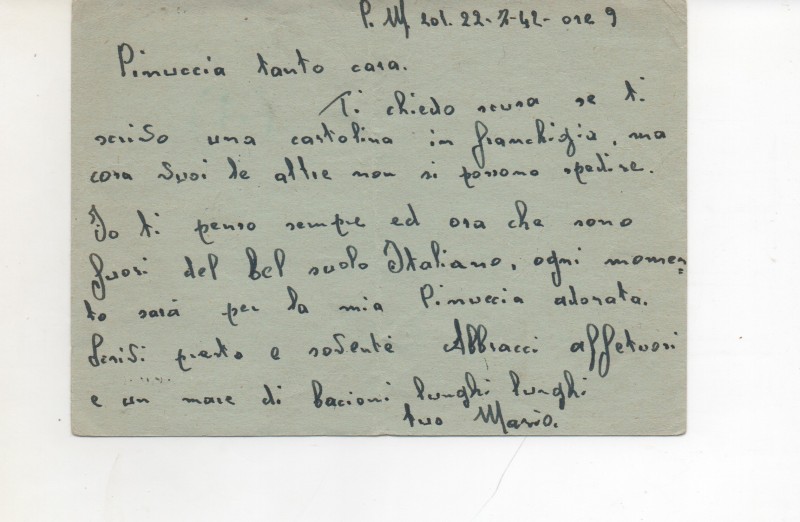 P. M. 201. 22-7-42- ore 9
Pinuccia tanto cara.
Ti chiedo scusa se ti
scrivo una cartolina in franchigia, ma
cosa vuoi le altre non si possono spedire.
Io ti penso sempre ed ora che sono
fuori del bel suolo Italiano, ogni momen=
to sarà per la mia Pinuccia adorata.
Scrivi presto e sovente Abbracci affetuosi
e un mare di bacioni lunghi lunghi
tuo Mario.